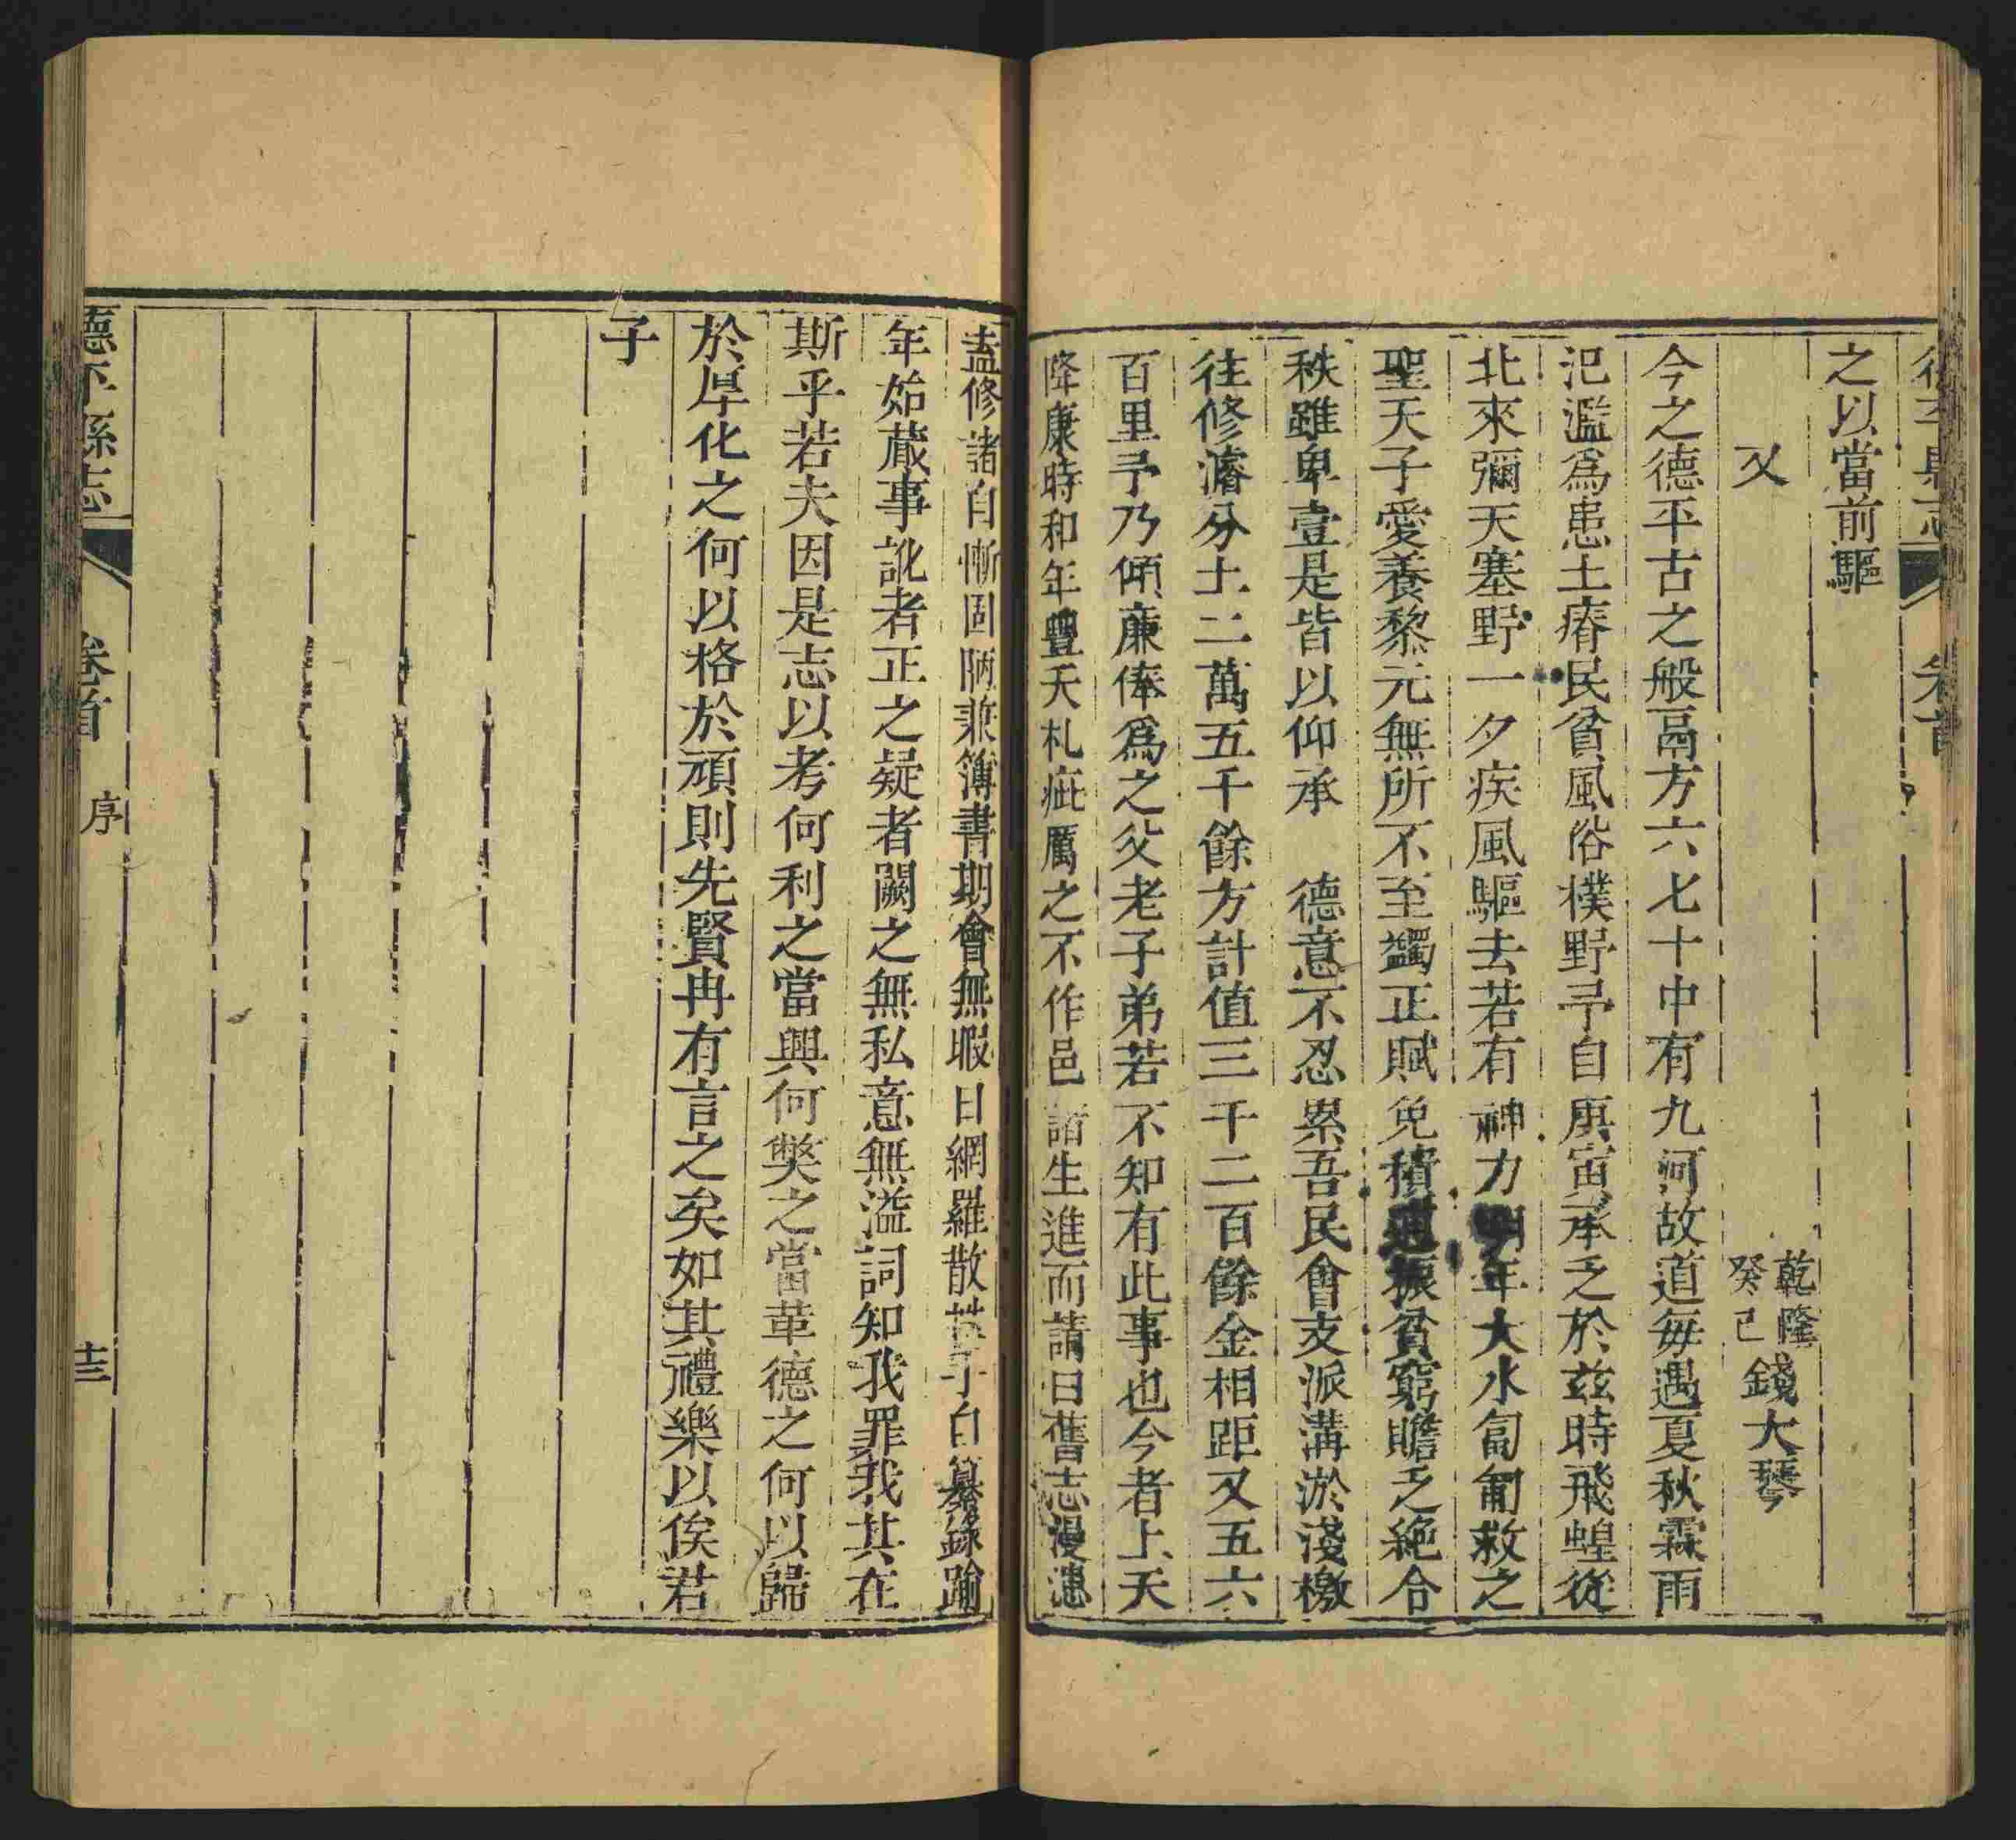 之以當前驅
又
乾隆癸巳錢大琴
今之德平古之般鬲方六七十中有九河故道每遇夏秋霖雨
汜濫爲患土瘠民貧風俗樸野予自庚寅承乏於兹時飛蝗從
北來彌天塞野一夕疾風驅去若有神力明年大水匍匐救之
聖天子愛養黎元無所不至蠲正賦免積逋振貧窮贍乏絶合
秩雖卑壹是皆以仰承 德意不忍累吾民會支派溝淤淺檄
往修濬分土二萬五千餘方計值三千二百餘金相距又五六
百里予乃傾廉俸爲之父老子弟若不知有此事也今者上天
降康時和年豐夭札疵厲之不作邑諸生進而請曰舊志漫漶
盍修諸自慚固陋兼簿書期會無暇日網羅散帙手自纂錄踰
年始蕆事訛者正之疑者闕之無私意無溢詞知我罪我其在
斯乎若夫因是志以考何利之當興何獘之當革德之何以歸
於厚化之何以格於頑則先賢冉有言之矣如其禮樂以俟君
子
德平縣志 卷首 序 十三